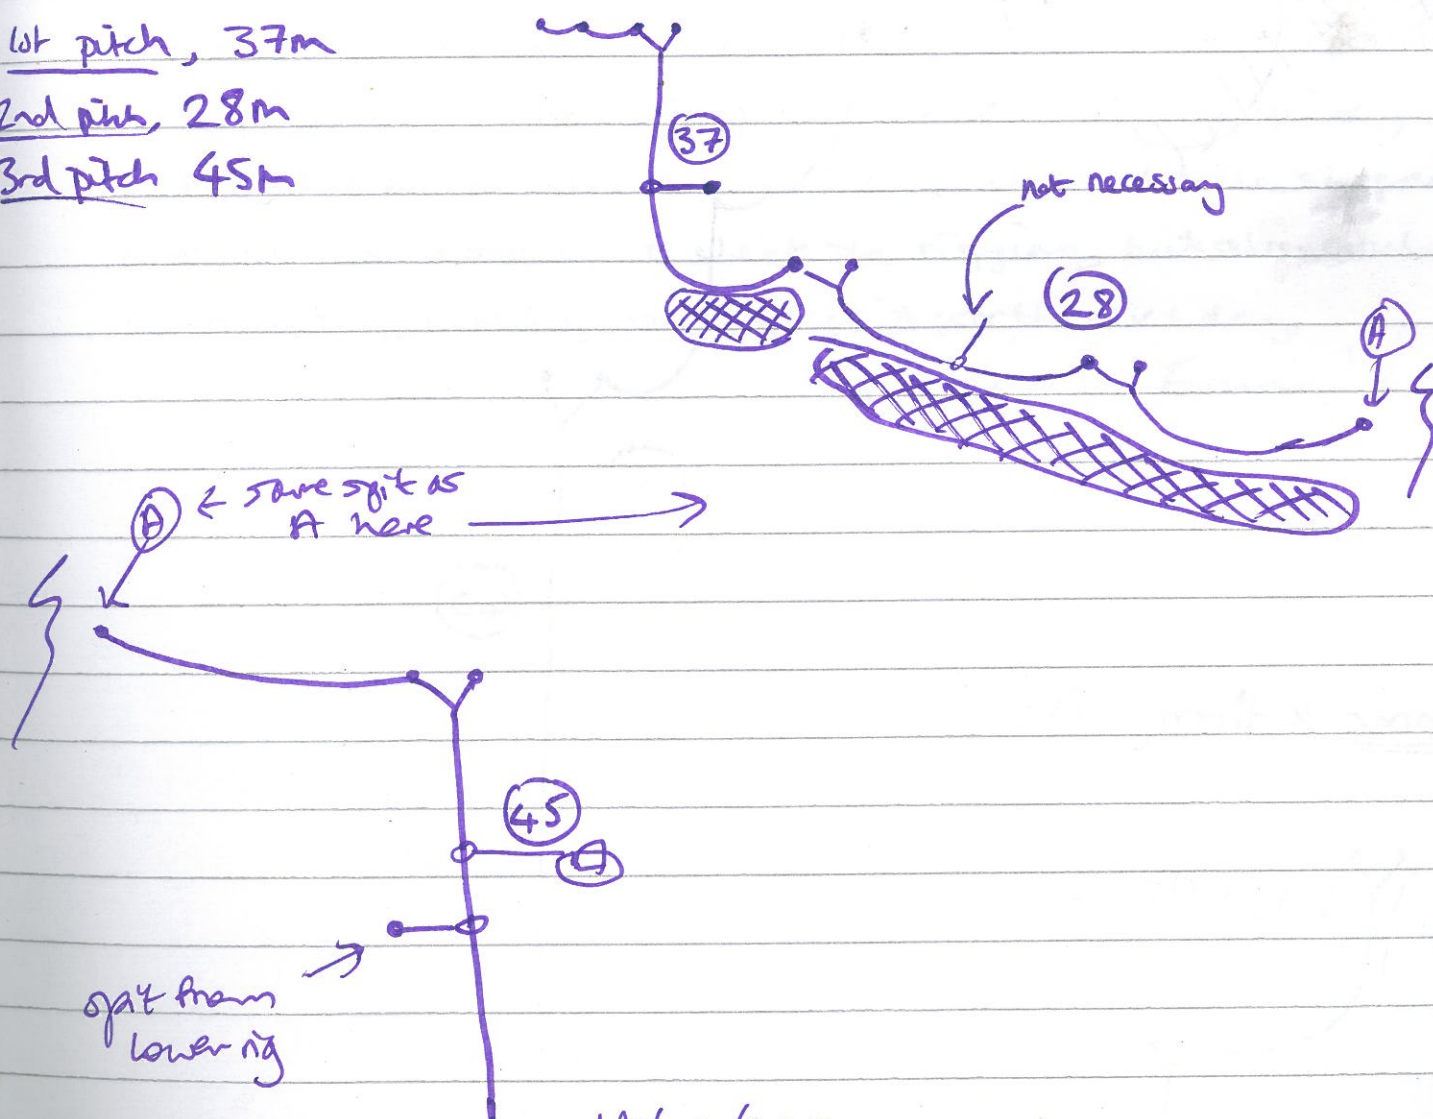 1st pitch, 37m
2nd pitch, 28m
3rd pitch 45m
37
not necessary
28
A
A ← same spit as
A here →
45
spit from
lower rig